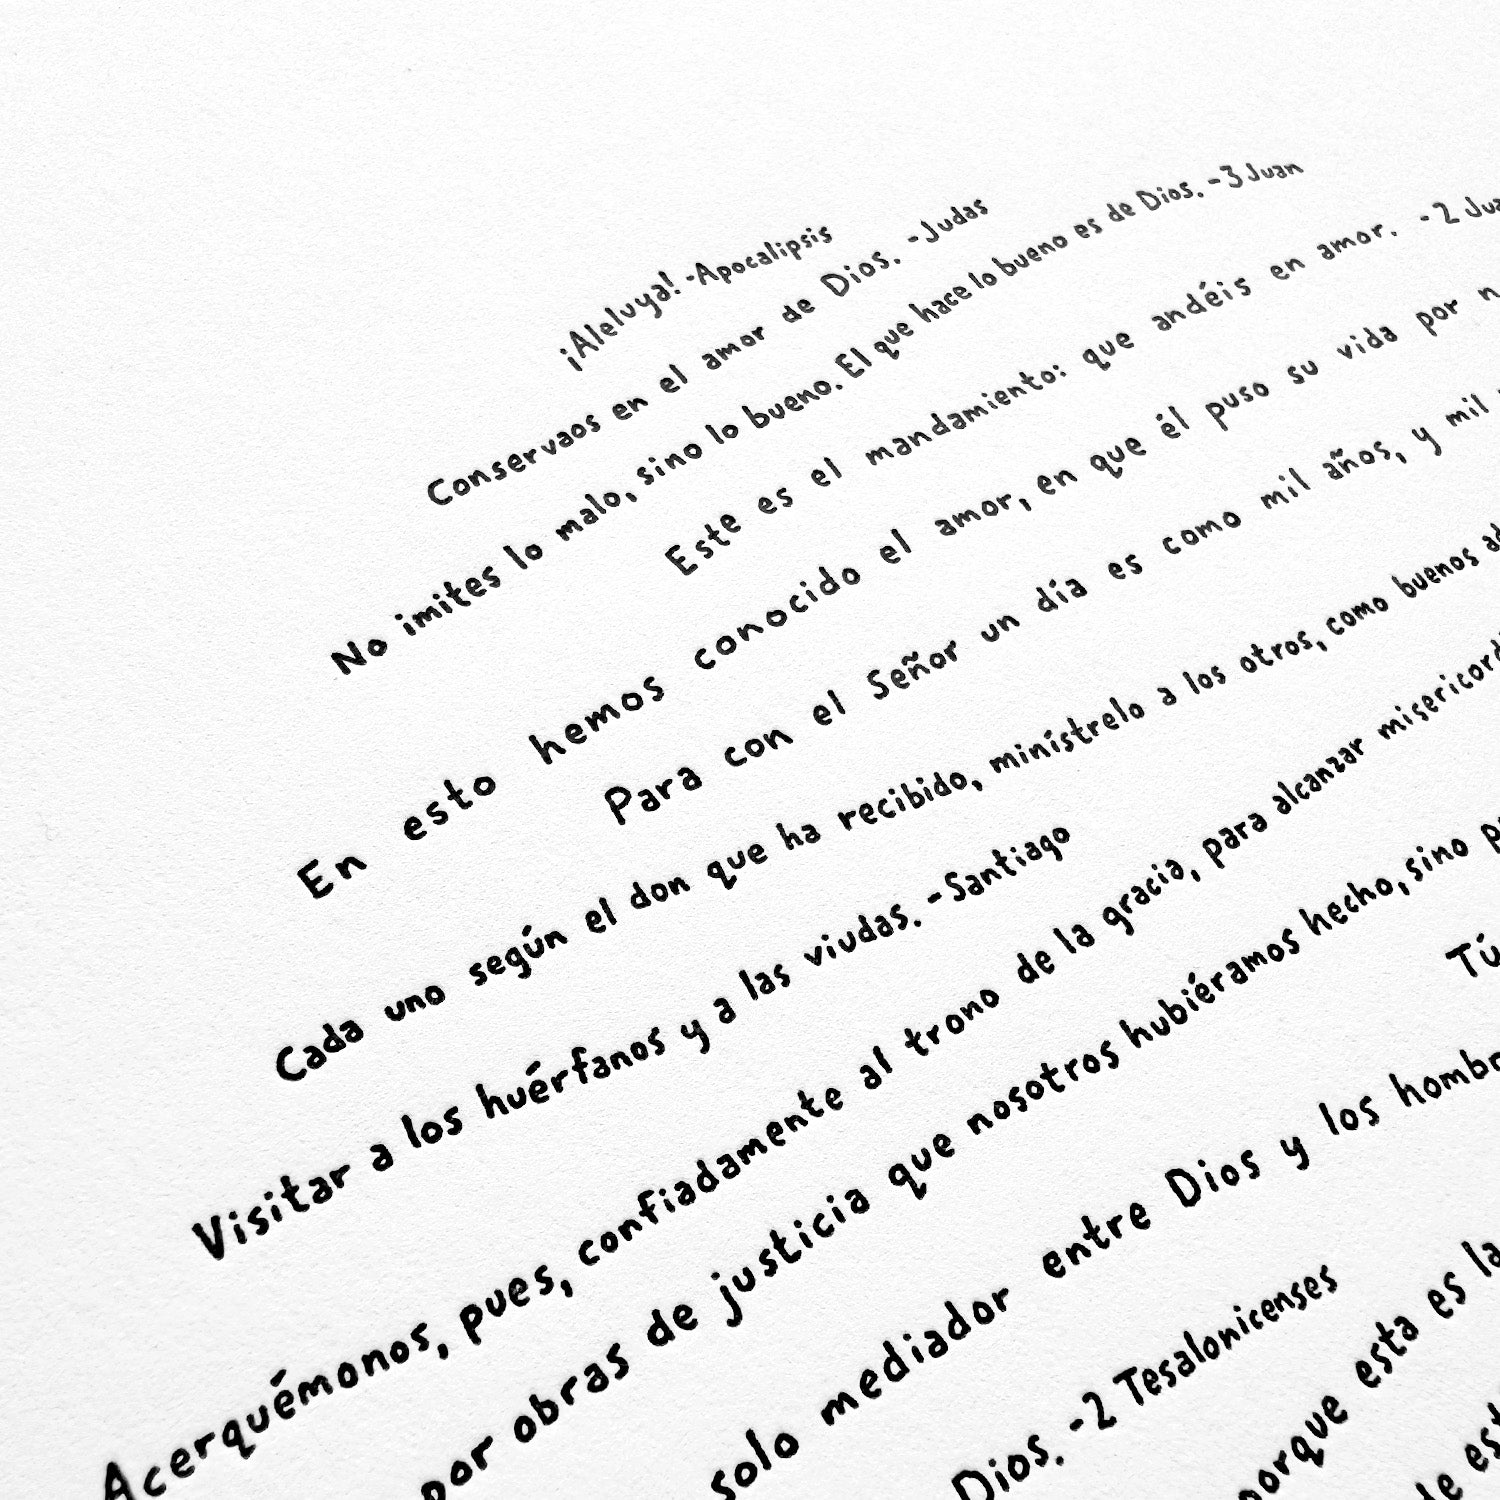 ¡Aleluya! -Apocalipsis
Conservaos en el amor de Dios. -Judas
No imites lo malo, sino lo bueno. El que hace lo bueno es de Dios. -3 Juan
Este es el mandamiento: que andéis en amor. -2 Jua
En esto hemos conocido el amor, en que él puso su vida por n
Para con el Señor un día es como mil años, y mil
Cada uno según el don que ha recibido, minístrelo a los otros, como buenos ad
Visitar a los huérfanos y a las viudas. -Santiago
Acerquémonos, pues, confiadamente al trono de la gracia, para alcanzar misericord
por obras de justicia que nosotros hubiéramos hecho, sino p
Tú
solo mediador entre Dios y los hombr
Dios. -2 Tesalonicenses
porque esta es la
de est